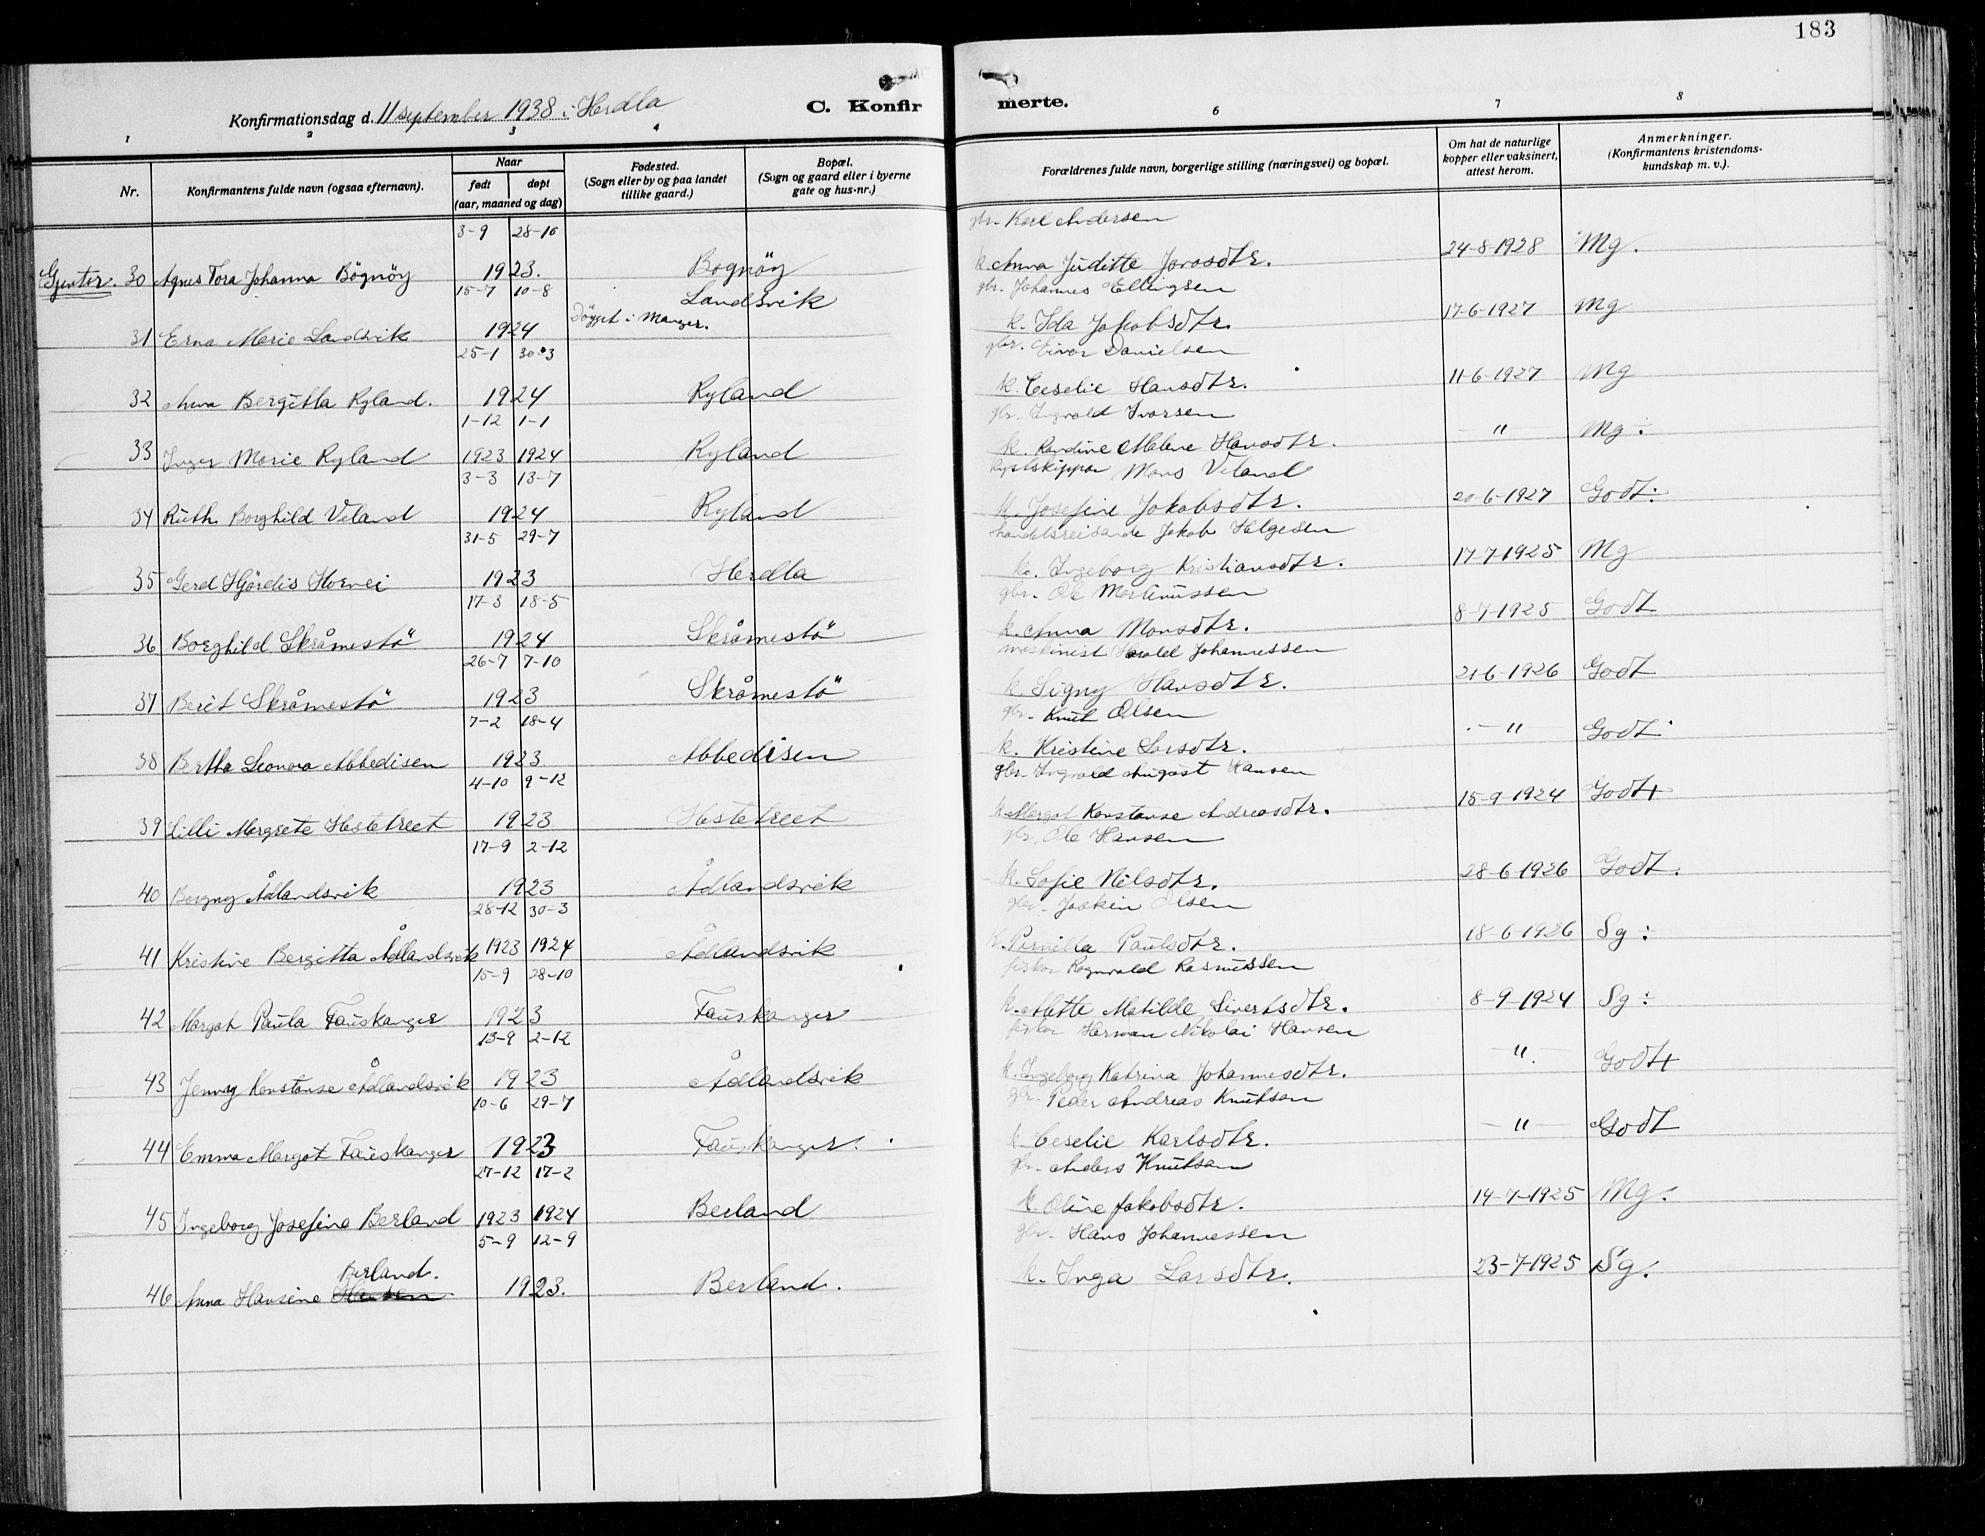 183
Konfirmationsdag d. 11 september 1938 i Herdla
C. Konfirmerte.
1 2 3 4 6 7 8
Nr.
Konfirmantens fulde navn (ogsaa efternavn).
Naar
født døpt
(aar, maaned og dag)
Fødested.
(Sogn eller by og paa landet
tillike gaard.)
Bopæl.
(Sogn og gaard eller i byerne
gate og hus-nr.)
Forældrenes fulde navn, borgerlige stilling (næringsvei) og bopæl.
Om hat de naturlige
kopper eller vaksinert,
attest herom.
Anmerkninger.
(Konfirmantens kristendoms-
kundskap m. v.).
3-9 28-10 gbr. Karl Andersen
Gjenter. 30 Agnes Tora Johanna Bögnöy 1923. Bognöy k. Anna Juditte Jonasdtr. 24-8-1928 Mg.
15-7 10-8 gbr. Johannes Ellingsen
31 Erna Marie Landsvik 1924 Döypt i Manger. Landsvik k. Ida Jakobsdtr. 17-6-1927 Mg
25-1 30-3 gbr. Eivor Danielsen
32 Anna Bergitta Ryland. 1924 Ryland k. Ceselie Hansdtr. 11-6-1927 Mg
1-12 1-1 gbr. Ingvald Ivarsen
33 Inger Marie Ryland 1923 1924 Ryland k. Randine Malene Hansdtr. — " — Mg ÷
3-3 13-7 kystskippar Mons Veland
34 Ruth Borghild Veland 1924 Ryland k. Josefine Jakobsdtr. 20-6-1927 Godt ÷
31-5 29-7 handelsreisande Jakob Helgesen
35 Gerd Hjördis Hoevei 1923 Herdla k. Ingeborg Kristiansdtr. 17-7-1925 Mg
17-3 18-5 gbr. Ole Martinussen
36 Borghild Skråmestö 1924 Skråmestö k. Anna Monsdtr. 8-7-1925 Godt
26-7 7-10 maskinist Harald Johannessen
37 Berit Skråmestö 1923 Skråmestö k. Signy Hansdtr. 21-6-1926 Godt
7-2 18-4 gbr. Knut Olsen
38 Bertha Leonora Abbedisen 1923 Abbedisen k. Kristine Larsdtr. — " Godt
4-10 9-12 gbr. Ingvald August Hansen
39 Lilli Margrete Hestetreet 1923 Hestetreet k. Margot Konstanse Andreasdtr. 15-9-1924 Godt+
17-9 2-12 gbr. Ole Hansen
40 Borgny Ådlandsvik 1923 Ådlandsvik k. Sofie Nilsdtr. 28-6-1926 Godt.
28-12 30-3 gbr. Joakim Olsen
41 Kristine Bergitta Ådlandsvik 1923 1924 Ådlandsvik k. Pernilla Paulsdtr. 18-6-1926 Sg ÷
15-9 28-10 fiskar Ragnvald Rasmussen
42 Margot Paula Fauskanger 1923 Fauskanger k. Mette Matilde Sivertsdtr. 8-9-1924 Sg ÷
13-9 2-12 fiskar Herman Nikolai Hansen
43 Jenny Konstanse Ådlandsvik 1923 Ådlandsvik k. Ingeborg Katrina Johannesdtr. — " . Godt+
10-6 29-7 gbr. Peder Andreas Knutsen
44 Emma Margot Fauskanger 1923 Fauskanger. k. Ceselie Karlsdtr. — " — Godt
27-12 17-2 gbr. Anders Knutsen
45 Ingeborg Josefine Berland 1923 1924 Berland k. Oline Jakobsdtr. 14-7-1925 Mg.
5-9 12-9 gbr. Hans Johannessen
Berland.
46 Anna Hansine Hansen 1923. Berland. k. Inga Larsdtr. 23-7-1925 Sg.